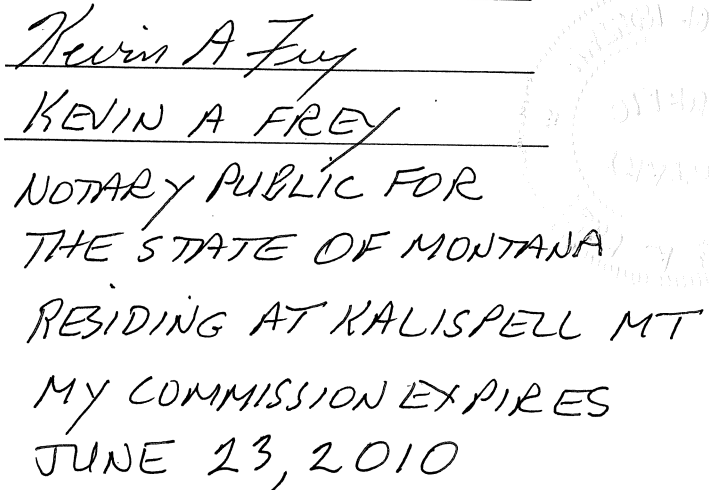 Kevin A Frey
KEVIN A FREY
NOTARY PUBLIC FOR
THE STATE OF MONTANA
RESIDING AT KALISPELL MT
MY COMMISSION EXPIRES
JUNE 23, 2010